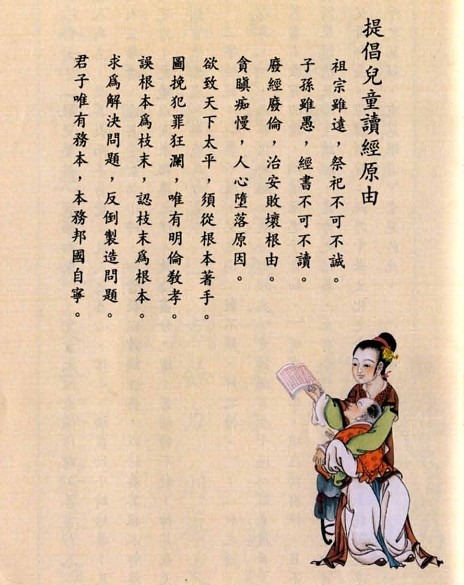 提倡兒童讀經原由
祖宗雖遠，祭祀不可不誠。
子孫雖愚，經書不可不讀。
廢經廢倫，治安敗壞根由。
貪瞋痴慢，人心墮落原因。
欲致天下太平，須從根本著手。
圖挽犯罪狂瀾，唯有明倫教孝。
誤根本為枝末，認枝末為根本。
求為解決問題，反倒製造問題。
君子唯有務本，本務邦國自寧。